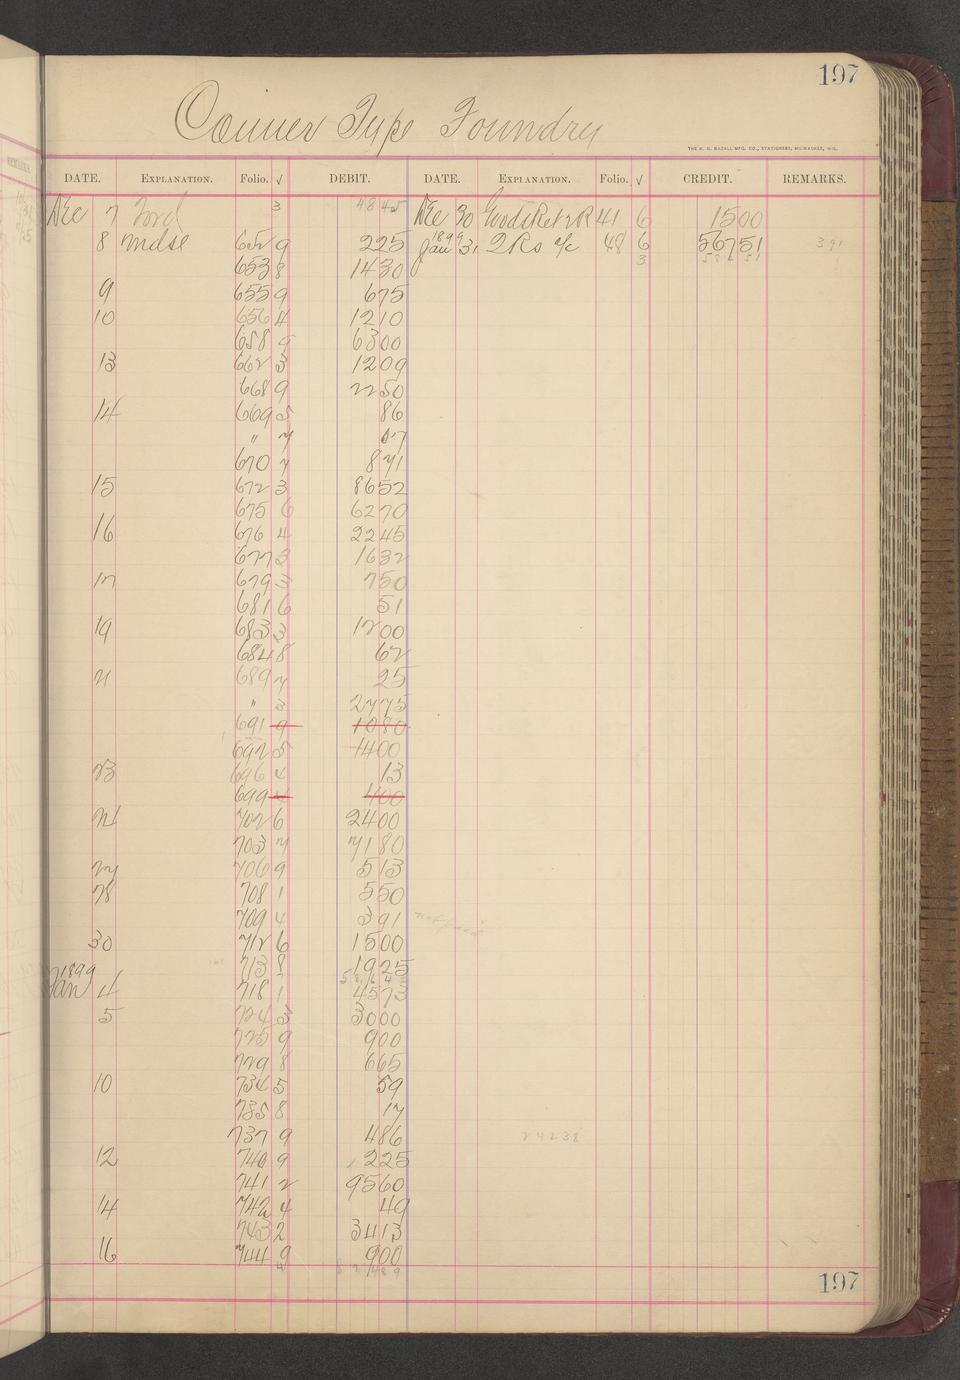 197
Conner Type Foundry
THE H. G. RAZALL MFG. CO., STATIONERS, MILWAUKEE, WIS.
DATE. EXPLANATION. Folio. √ DEBIT. DATE. EXPLANATION. Folio. √ CREDIT. REMARKS.
Dec 7 Ford 3 4845 Dec 30 Goods Ret 2R 41 6 1500
8 Mdse 652 9 225 1899 Jan 31 2Rs a/c 48 6 56751 391
653 8 1430 3
9 655 9 675
10 656 4 1210
658 9 6300
13 662 3 1209
668 9 2250
14 669 5 86
" 7 17
670 7 871
15 672 3 8652
675 6 6270
16 676 4 2245
677 3 1632
17 679 3 750
681 6 51
19 683 3 1200
684 8 62
21 689 7 25
" 3 2775
691 9 1080
692 5 1400
23 696 4 13
699 4 400
24 702 6 2400
703 7 7180
27 706 9 513
28 708 1 550
709 4 391 not paid
30 712 6 1500
713 8 1925
1899
Jan 4 718 1 4573
5 724 3 3000
725 9 900
729 8 665
10 734 5 59
735 8 17
737 9 486 24238
12 740 9 225
741 2 9560
14 742 4 49
743 2 3413
16 744 9 900
197